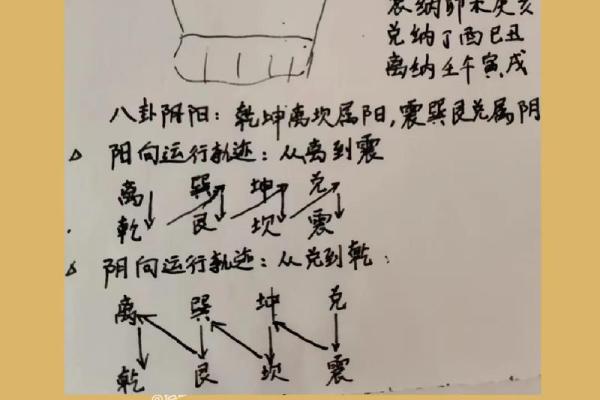 震纳卯未庚亥
兑纳丁酉巳丑
离纳壬午寅戌
八卦阴阳：乾坤离坎属阳，震巽艮兑属阴
△ 阳向运行轨迹：从离到震
离 巽 坤 兑
乾 艮 坎 震
△ 阴向运行轨迹：从兑到乾：
离 巽 坤 兑
乾 艮 坎 震